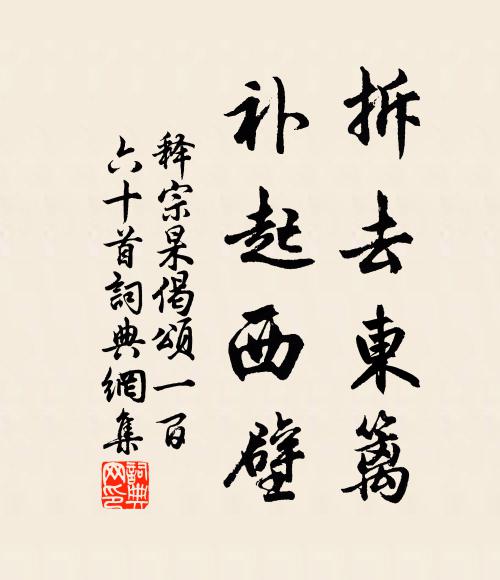 拆去東籬
补起西壁
释宗杲偈頌一百
六十首詞典網集
詞典网印